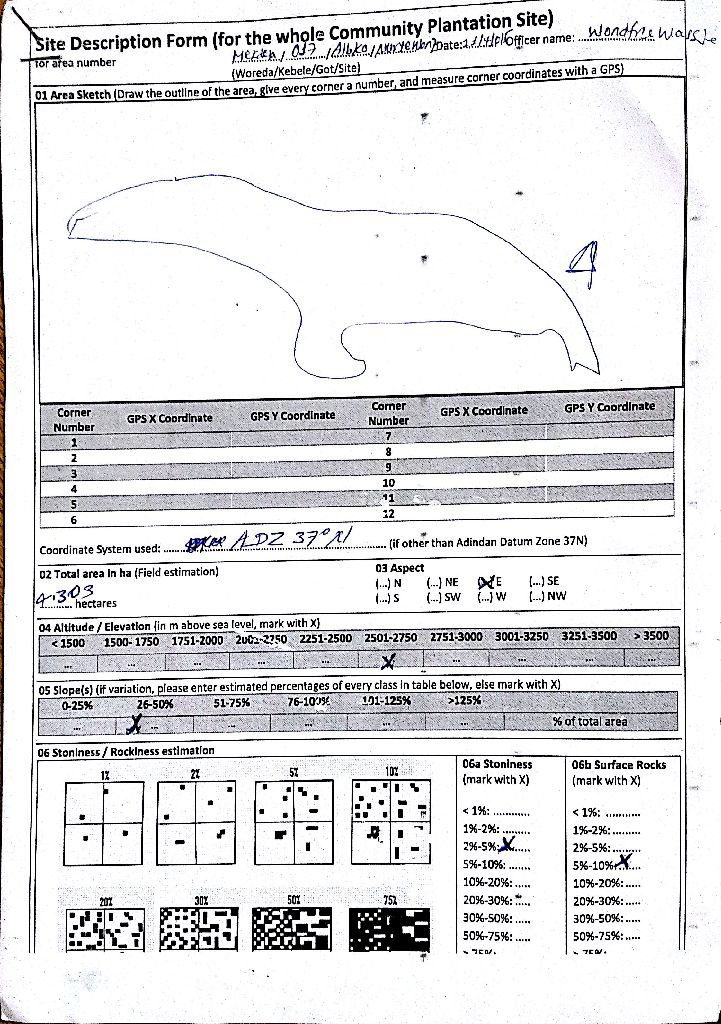 Site Description Form (for the whole Community Plantation Site)
for area number 017 Date: Officer name:
(Woreda/Kebele/Got/Site)
01 Area Sketch (Draw the outline of the area, give every corner a number, and measure corner coordinates with a GPS)
4
Corner Number GPS X Coordinate GPS Y Coordinate Corner Number GPS X Coordinate GPS Y Coordinate
1 7
2 8
3 9
4 10
5 11
6 12
Coordinate System used: ADZ 37°N (if other than Adindan Datum Zone 37N)
02 Total area in ha (Field estimation)
4.303 hectares
03 Aspect
(...) N (...) NE (X) E (...) SE
(...) S (...) SW (...) W (...) NW
04 Altitude / Elevation (in m above sea level, mark with X)
< 1500 1500-1750 1751-2000 2001-2250 2251-2500 2501-2750 2751-3000 3001-3250 3251-3500 > 3500
... ... ... ... ... X ... ... ... ...
05 Slope(s) (if variation, please enter estimated percentages of every class in table below, else mark with X)
0-25% 26-50% 51-75% 76-100% 101-125% >125%
... X ... ... ... ... ... % of total area
06 Stoniness / Rockiness estimation
1% 2% 5% 10%
20% 30% 50% 75%
06a Stoniness
(mark with X)
< 1%: ............
1%-2%: .........
2%-5%: X
5%-10%: .......
10%-20%: .....
20%-30%: .....
30%-50%: .....
50%-75%: .....
> 75%:
06b Surface Rocks
(mark with X)
< 1%: ...........
1%-2%: .........
2%-5%: .........
5%-10%: X
10%-20%: .....
20%-30%: .....
30%-50%: .....
50%-75%: .....
> 75%: